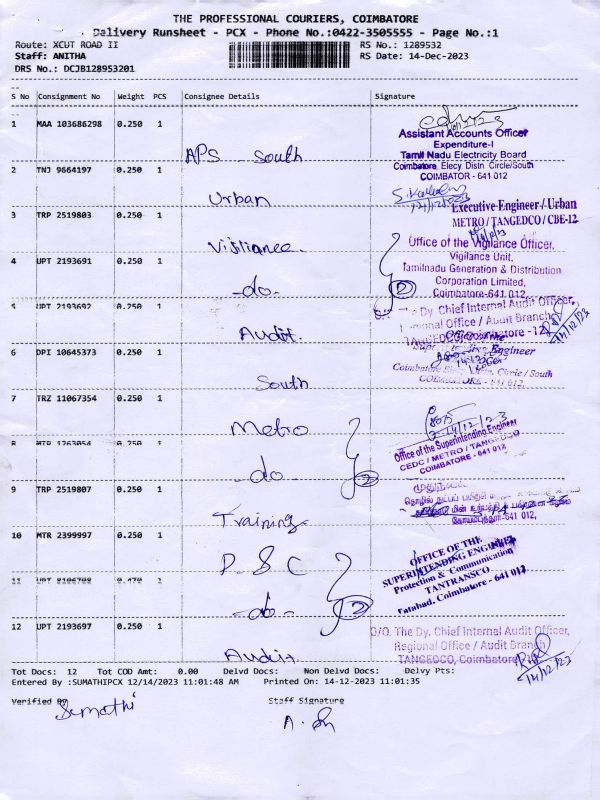 THE PROFESSIONAL COURIERS, COIMBATORE
Delivery Runsheet - PCX - Phone No.:0422-3505555 - Page No.:1
Route: XCUT ROAD II RS No.: 1289532
Staff: ANITHA RS Date: 14-Dec-2023
DRS No.: DCJB128953201
S No Consignment No Weight PCS Consignee Details Signature
1 MAA 103686298 0.250 1
Assistant Accounts Officer
Expenditure-I
APS South Tamil Nadu Electricity Board
Coimbatore. Elecy. Distn. Circle/South
COIMBATOR - 641 012
2 TNJ 9664197 0.250 1
Urban Executive Engineer / Urban
METRO / TANGEDCO / CBE-12
3 TRP 2519803 0.250 1
Vigilance Office of the Vigilance Officer,
Vigilance Unit,
4 UPT 2193691 0.250 1 Tamilnadu Generation & Distribution
Corporation Limited,
-do- 2 Coimbatore-641 012
5 UPT 2193692 0.250 1 The Dy. Chief Internal Audit Officer,
Regional Office / Audit Branch
Audit. TANGEDCO, Coimbatore - 12
14/12/23
6 DPI 10645373 0.250 1 Engineer
South Circle / South
COIMBATORE - 641 012
7 TRZ 11067354 0.250 1
Metro 14/12/23
Office of the Superintending Engineer
8 MTP 1263054 0.250 1 CEDC / METRO / TANGEDCO
COIMBATORE - 641 012
-do- 2
9 TRP 2519807 0.250 1
Training 641 012,
10 MTR 2399997 0.250 1 OFFICE OF THE
SUPERINTENDING ENGINEER
P & C Protection & Communication
TANTRANSCO
11 UPT 0.470 1 Tatabad, Coimbatore - 641 012
-do- 2
12 UPT 2193697 0.250 1 O/O. The Dy. Chief Internal Audit Officer,
Regional Office / Audit Branch
Audit. TANGEDCO, Coimbatore
14/12/23
Tot Docs: 12 Tot COD Amt: 0.00 Delvd Docs: Non Delvd Docs: Delvy Pts:
Entered By :SUMATHIPCX 12/14/2023 11:01:48 AM Printed On: 14-12-2023 11:01:35
Verified By Staff Signature
Sumathi